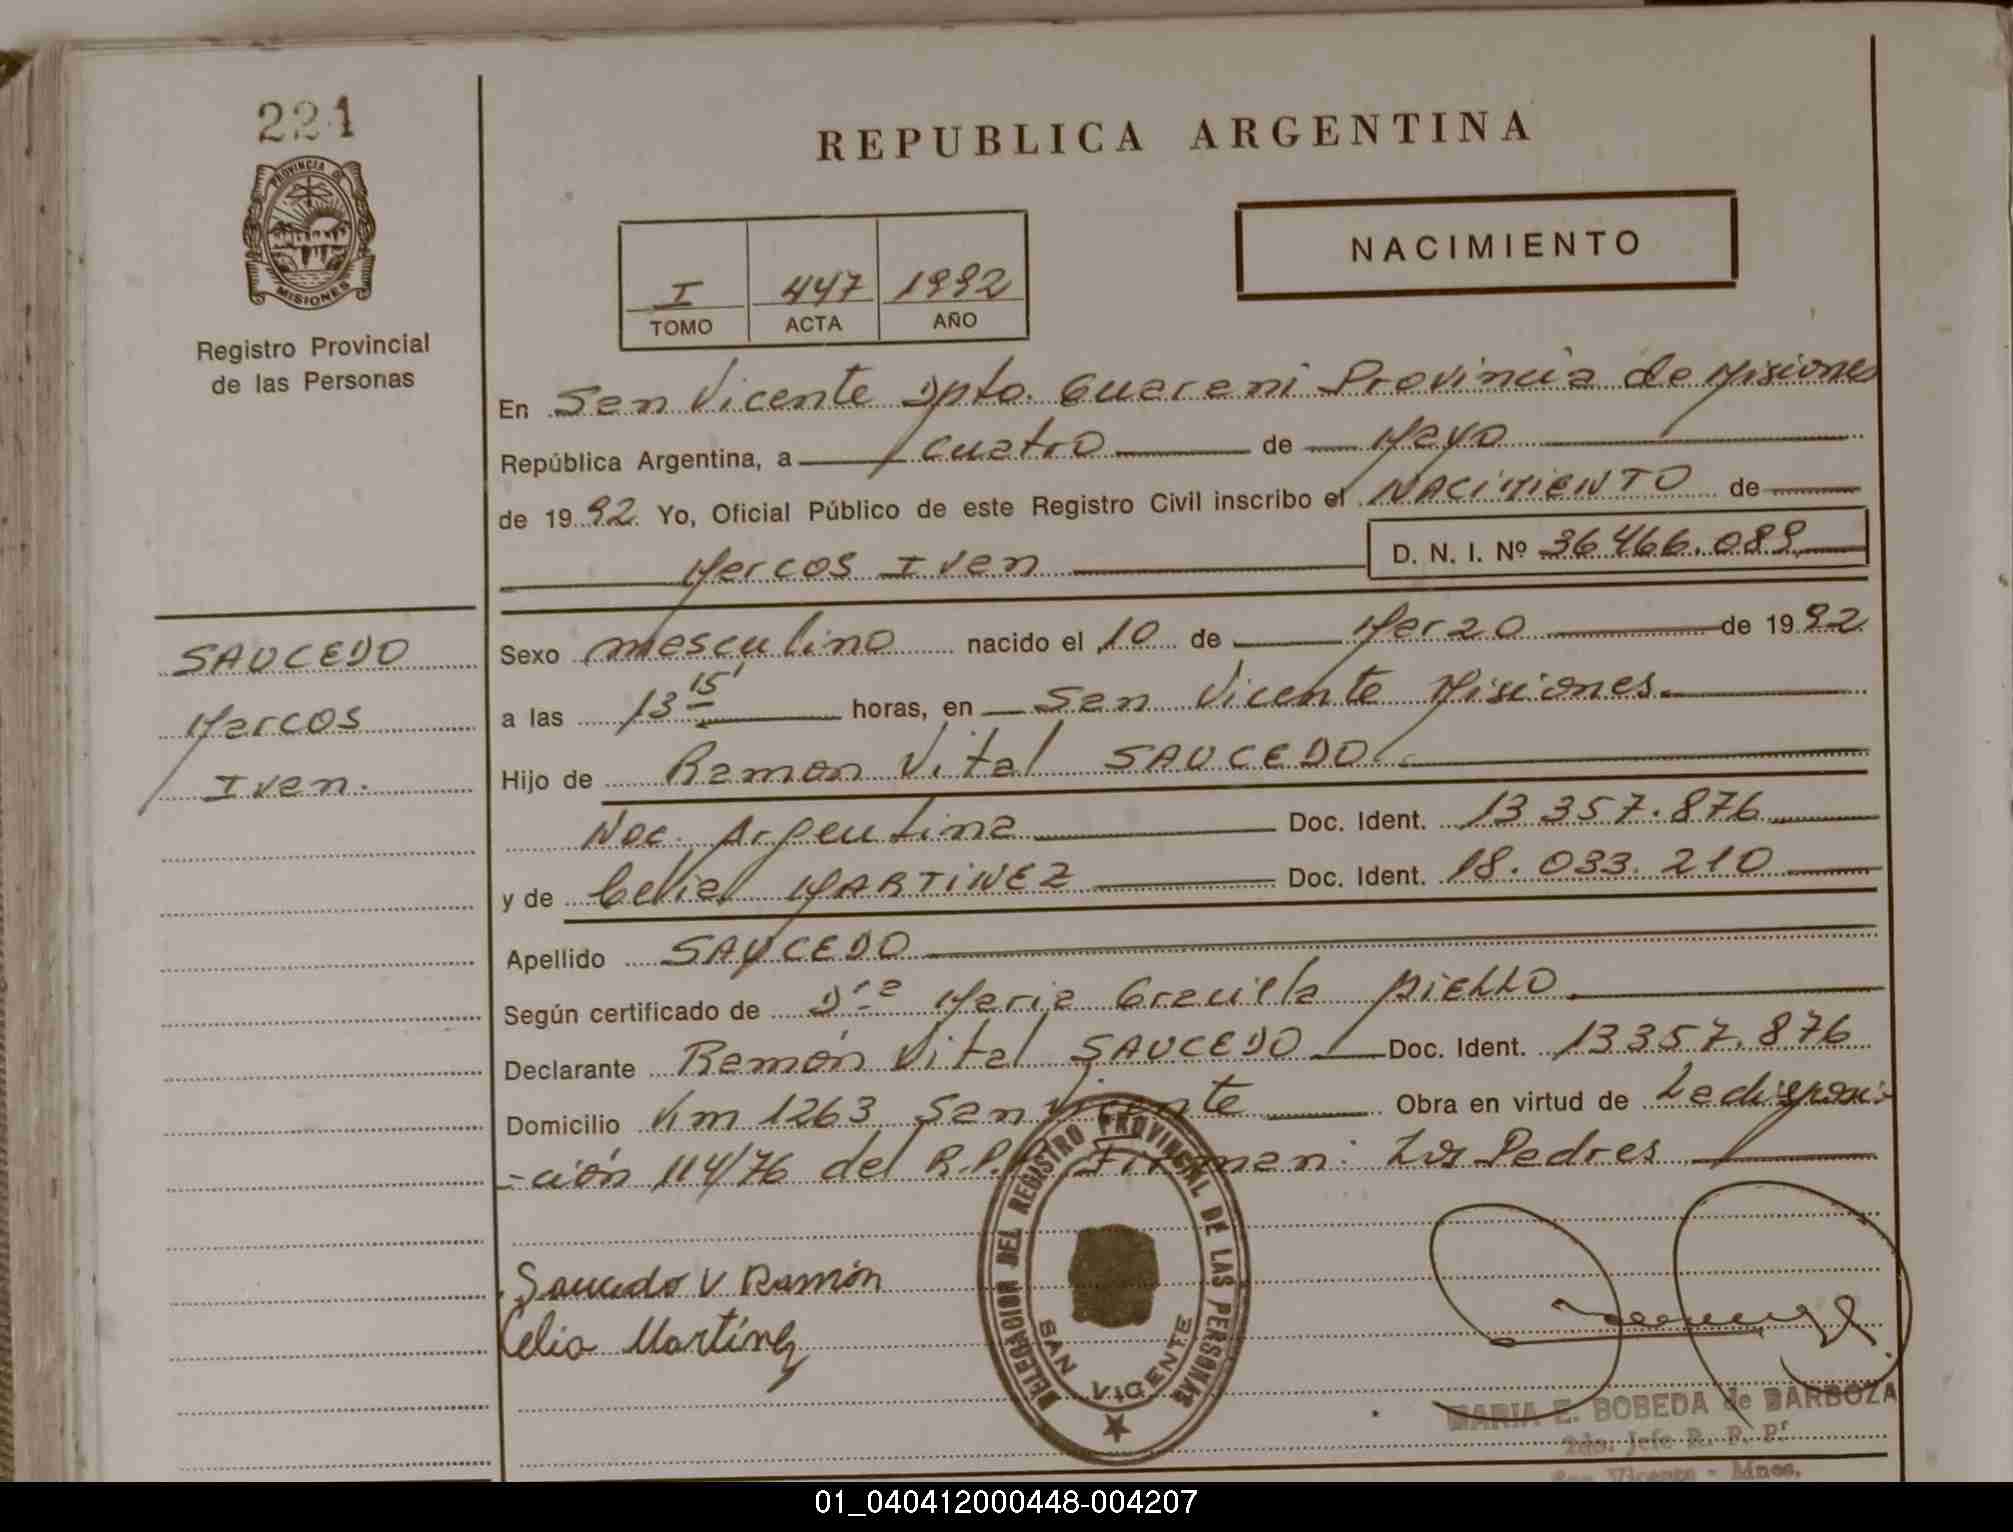 221
PROVINCIA DE
MISIONES
Registro Provincial
de las Personas
REPUBLICA ARGENTINA
NACIMIENTO
I 447 1992
TOMO ACTA AÑO
En San Vicente Dpto. Guarani Provincia de Misiones
República Argentina, a cuatro de Mayo
de 1992. Yo, Oficial Público de este Registro Civil inscribo el NACIMIENTO de
Marcos Ivan D. N. I. Nº 36466.089
SAUCEDO
Marcos
Ivan.
Sexo masculino nacido el 10 de Marzo de 1992
a las 13 15' horas, en San Vicente Misiones.
Hijo de Ramon Vital SAUCEDO
Nac. Argentina Doc. Ident. 13357.876
y de Celia MARTINEZ Doc. Ident. 18.033.210
Apellido SAUCEDO
Según certificado de Dra Maria Graciela AIELLO
Declarante Ramón Vital SAUCEDO Doc. Ident. 13357.876
Domicilio Km 1263 San Vicente Obra en virtud de La disposi-
-ción 114/76 del R.P. Firman: Los Padres
Saucedo V Ramón
Celia Martínez
DELEGACION DEL REGISTRO PROVINCIAL DE LAS PERSONAS
SAN VICENTE
MARIA E. BOBEDA de BARBOZA
2do. Jefe R. P. P.
San Vicente - Mnes.
01_040412000448-004207